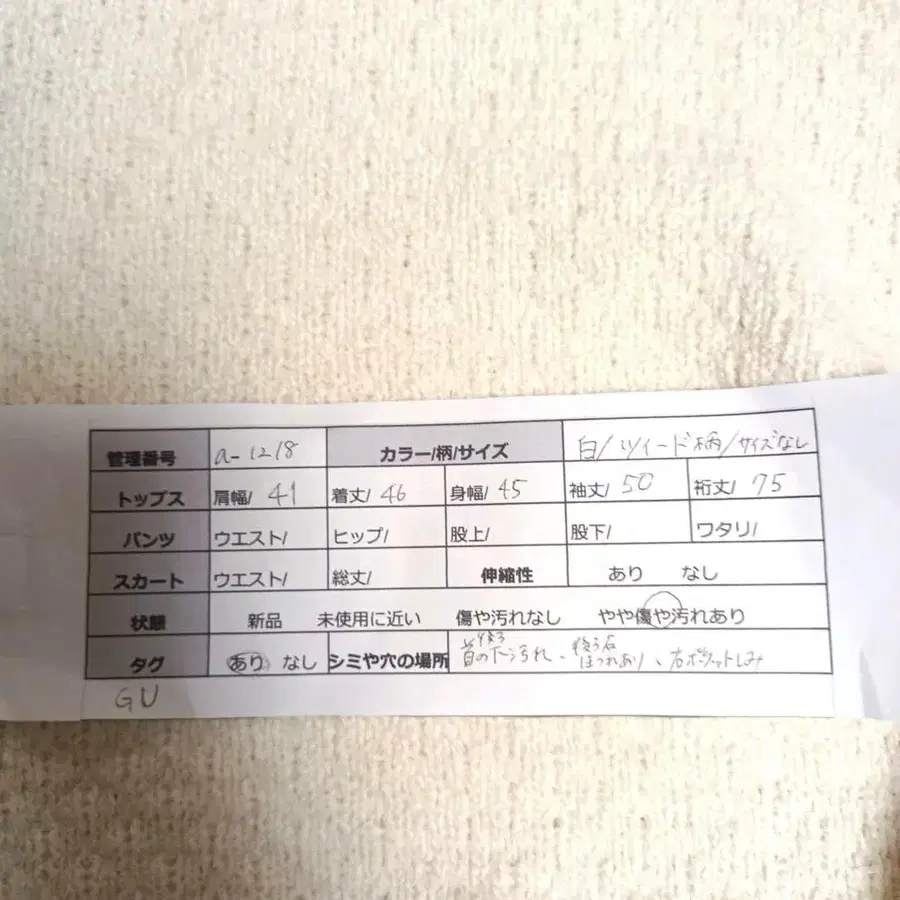 管理番号 a-1218 カラー/柄/サイズ 白/ツイード柄/サイズなし
トップス 肩幅/ 41 着丈/ 46 身幅/ 45 袖丈/ 50 裄丈/ 75
パンツ ウエスト/ ヒップ/ 股上/ 股下/ ワタリ/
スカート ウエスト/ 総丈/ 伸縮性 あり なし
状態 新品 未使用に近い 傷や汚れなし やや傷や汚れあり
タグ あり なし シミや穴の場所 後ろ首の下汚れ、後ろ右ほつれあり、右ポケットしみ
GU